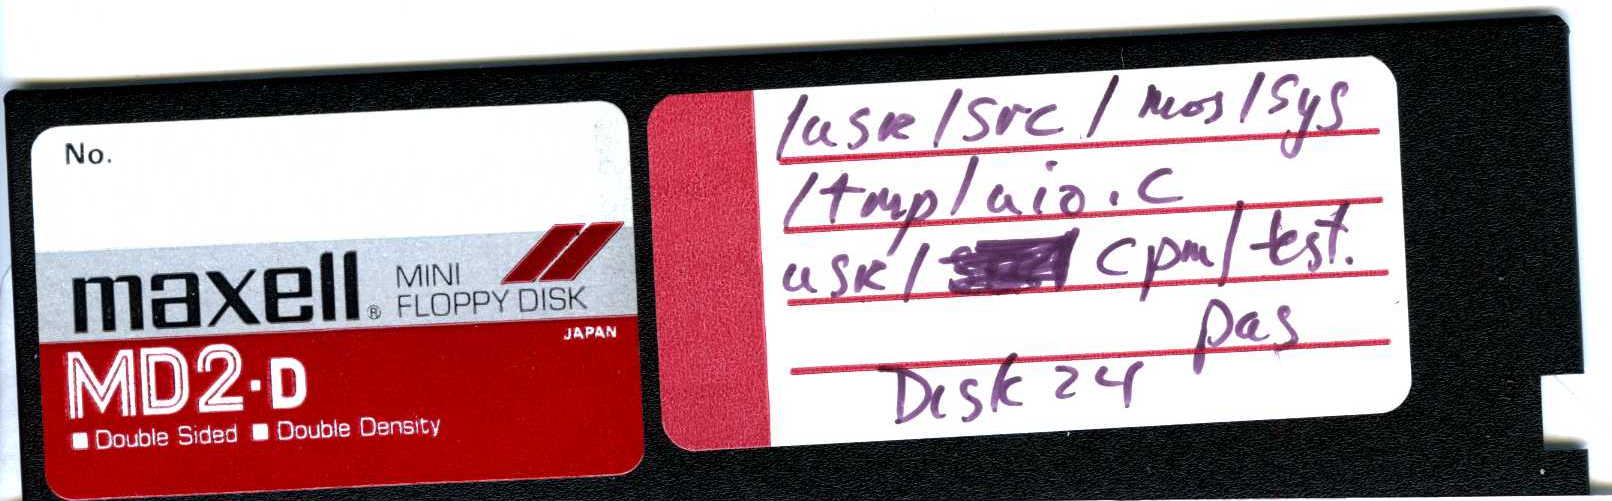 No.
maxell® MINI FLOPPY DISK
JAPAN
MD2-D
Double Sided Double Density
/usr/src/mos/sys
/tmp/aio.c
usr/ cpm/test.
pas
Disk 24